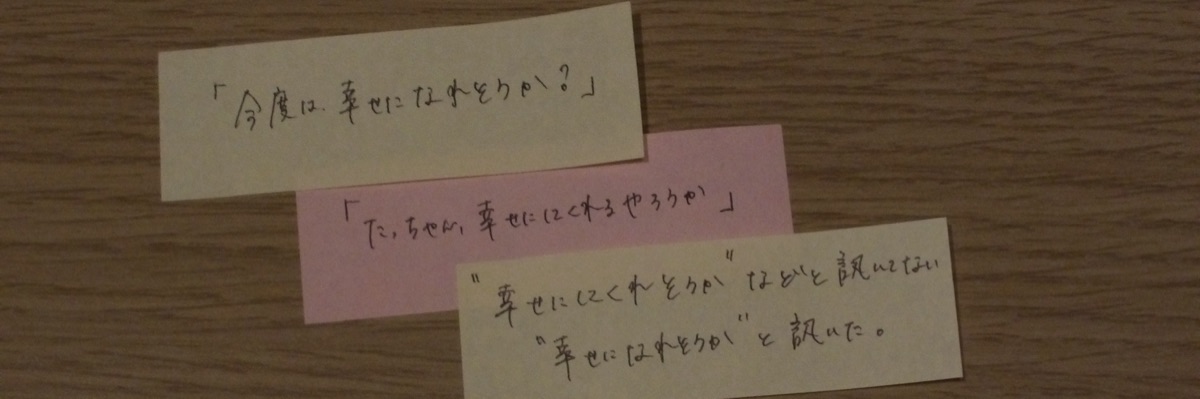 「今度は、幸せになれそうか？」
「たっちゃん、幸せにしてくれるやろうか」
"幸せにしてくれそうか"などと訊いてない
"幸せになれそうか"と訊いた。